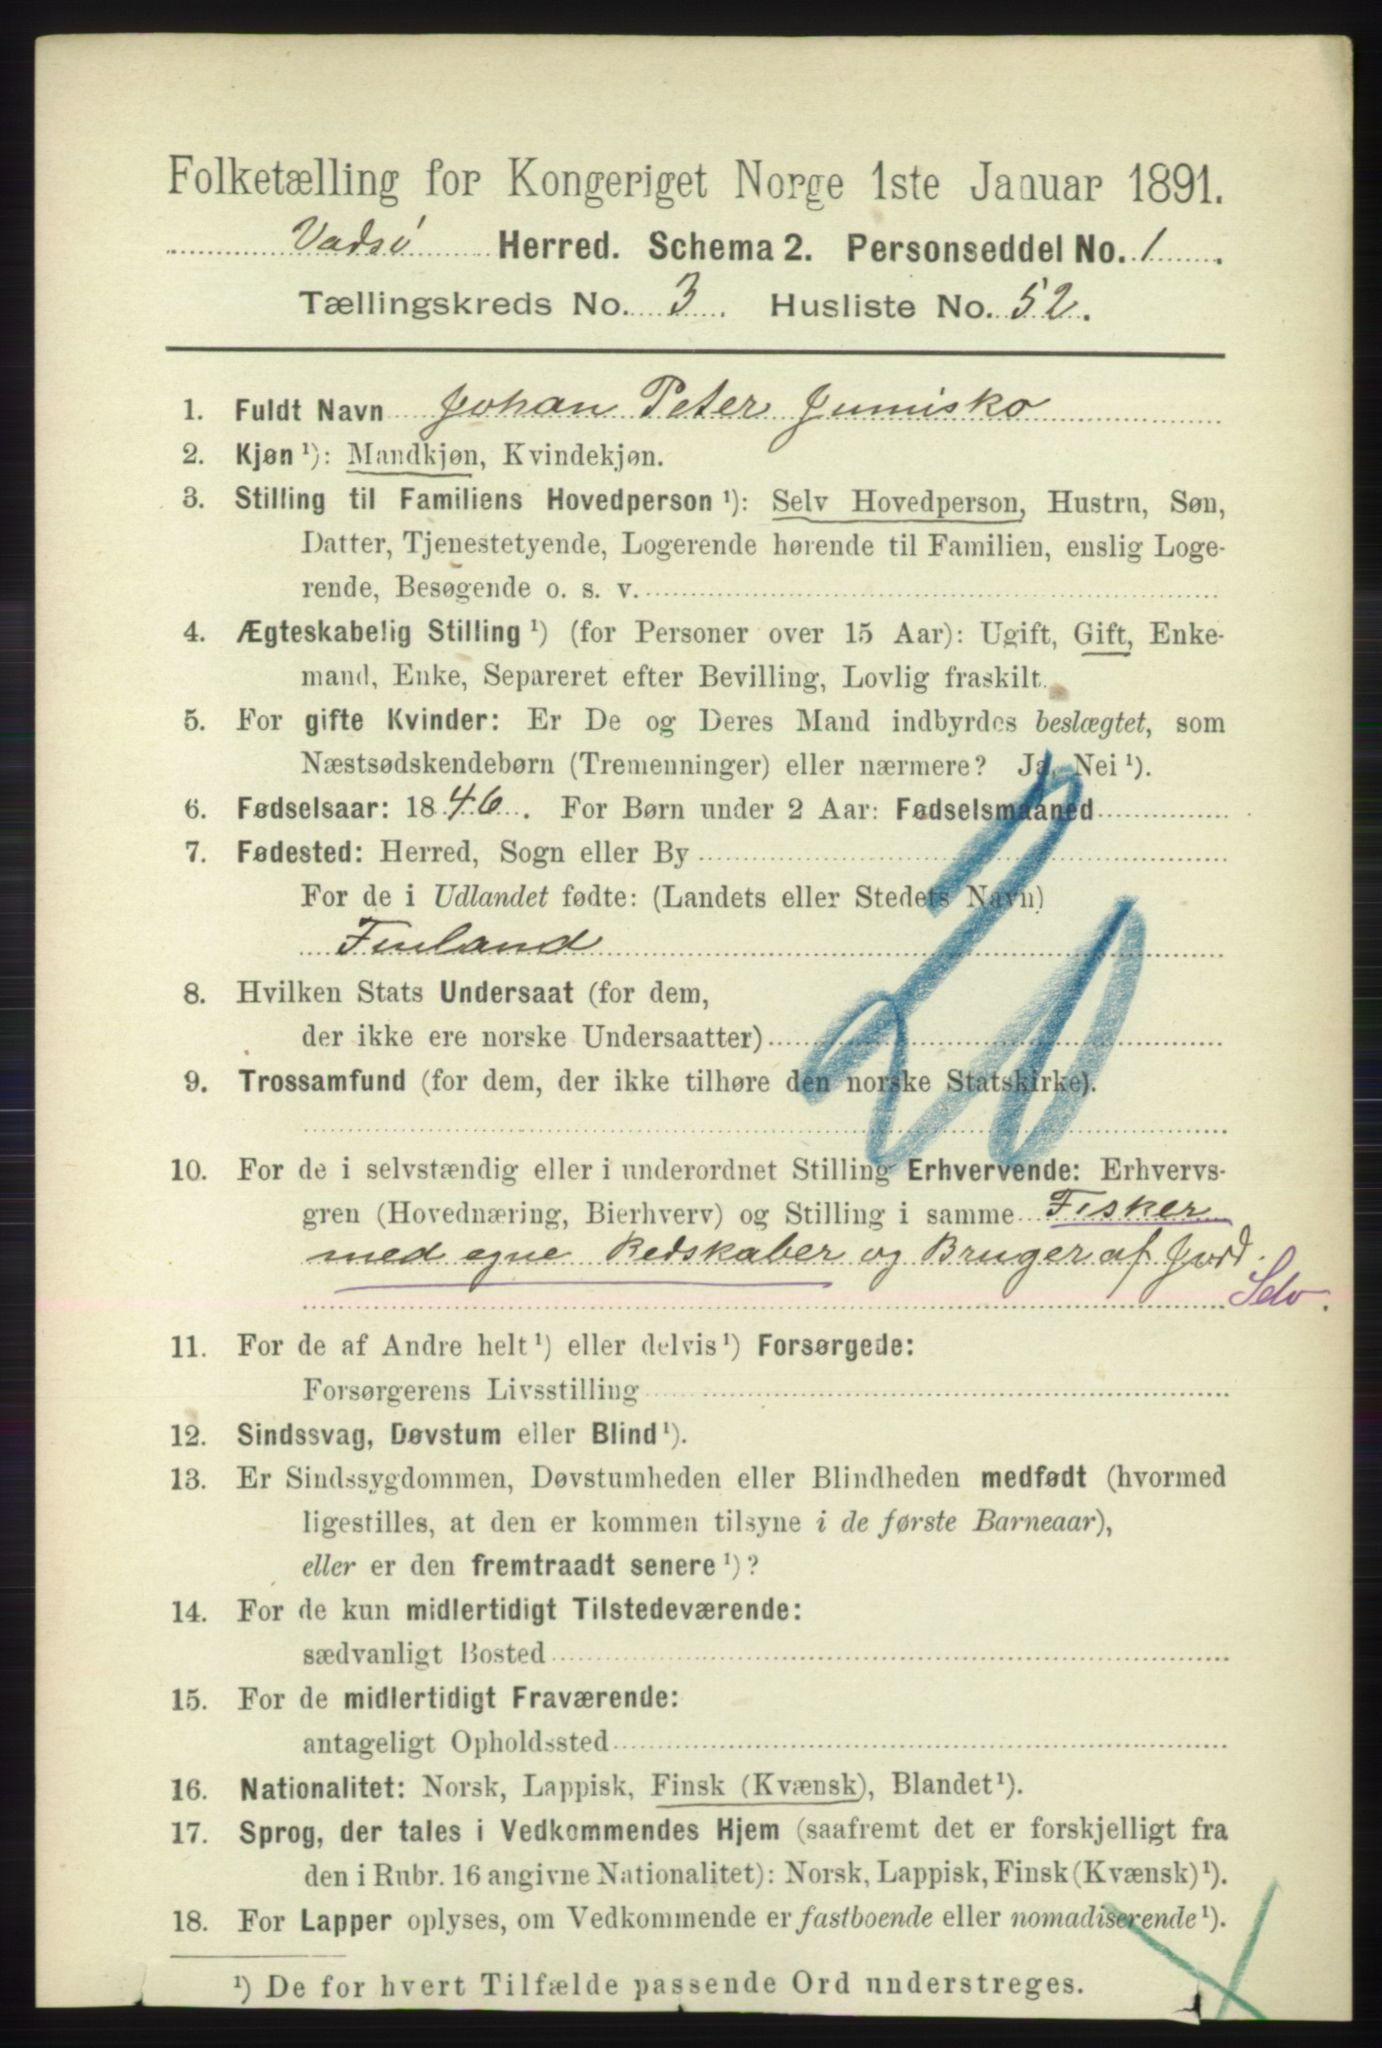 Folketælling for Kongeriget Norge 1ste Januar 1891.
Vadsø Herred. Schema 2. Personseddel No. 1.
Tællingskreds No. 3. Husliste No. 52.
1. Fuldt Navn Johan Peter Jumisko
2. Kjøn ¹): Mandkjøn, Kvindekjøn.
3. Stilling til Familiens Hovedperson ¹): Selv Hovedperson, Hustru, Søn,
Datter, Tjenestetyende, Logerende hørende til Familien, enslig Loge-
rende, Besøgende o. s. v.
4. Ægteskabelig Stilling ¹) (for Personer over 15 Aar): Ugift, Gift, Enke-
mand, Enke, Separeret efter Bevilling, Lovlig fraskilt.
5. For gifte Kvinder: Er De og Deres Mand indbyrdes beslægtet, som
Næstsødskendebørn (Tremenninger) eller nærmere? Ja, Nei ¹).
6. Fødselsaar: 1846. For Børn under 2 Aar: Fødselsmaaned
7. Fødested: Herred, Sogn eller By
For de i Udlandet fødte: (Landets eller Stedets Navn)
Finland
20
8. Hvilken Stats Undersaat (for dem,
der ikke ere norske Undersaatter)
9. Trossamfund (for dem, der ikke tilhøre den norske Statskirke).
10. For de i selvstændig eller i underordnet Stilling Erhvervende: Erhvervs-
gren (Hovednæring, Bierhverv) og Stilling i samme Fisker
med egne Redskaber og Bruger af Jord.
Selv.
11. For de af Andre helt ¹) eller delvis ¹) Forsørgede:
Forsørgerens Livsstilling
12. Sindssvag, Døvstum eller Blind ¹).
13. Er Sindssygdommen, Døvstumheden eller Blindheden medfødt (hvormed
ligestilles, at den er kommen tilsyne i de første Barneaar),
eller er den fremtraadt senere ¹)?
14. For de kun midlertidigt Tilstedeværende:
sædvanligt Bosted
15. For de midlertidigt Fraværende:
antageligt Opholdssted
16. Nationalitet: Norsk, Lappisk, Finsk (Kvænsk), Blandet ¹).
17. Sprog, der tales i Vedkommendes Hjem (saafremt det er forskjelligt fra
den i Rubr. 16 angivne Nationalitet): Norsk, Lappisk, Finsk (Kvænsk) ¹).
18. For Lapper oplyses, om Vedkommende er fastboende eller nomadiserende ¹).
¹) De for hvert Tilfælde passende Ord understreges.